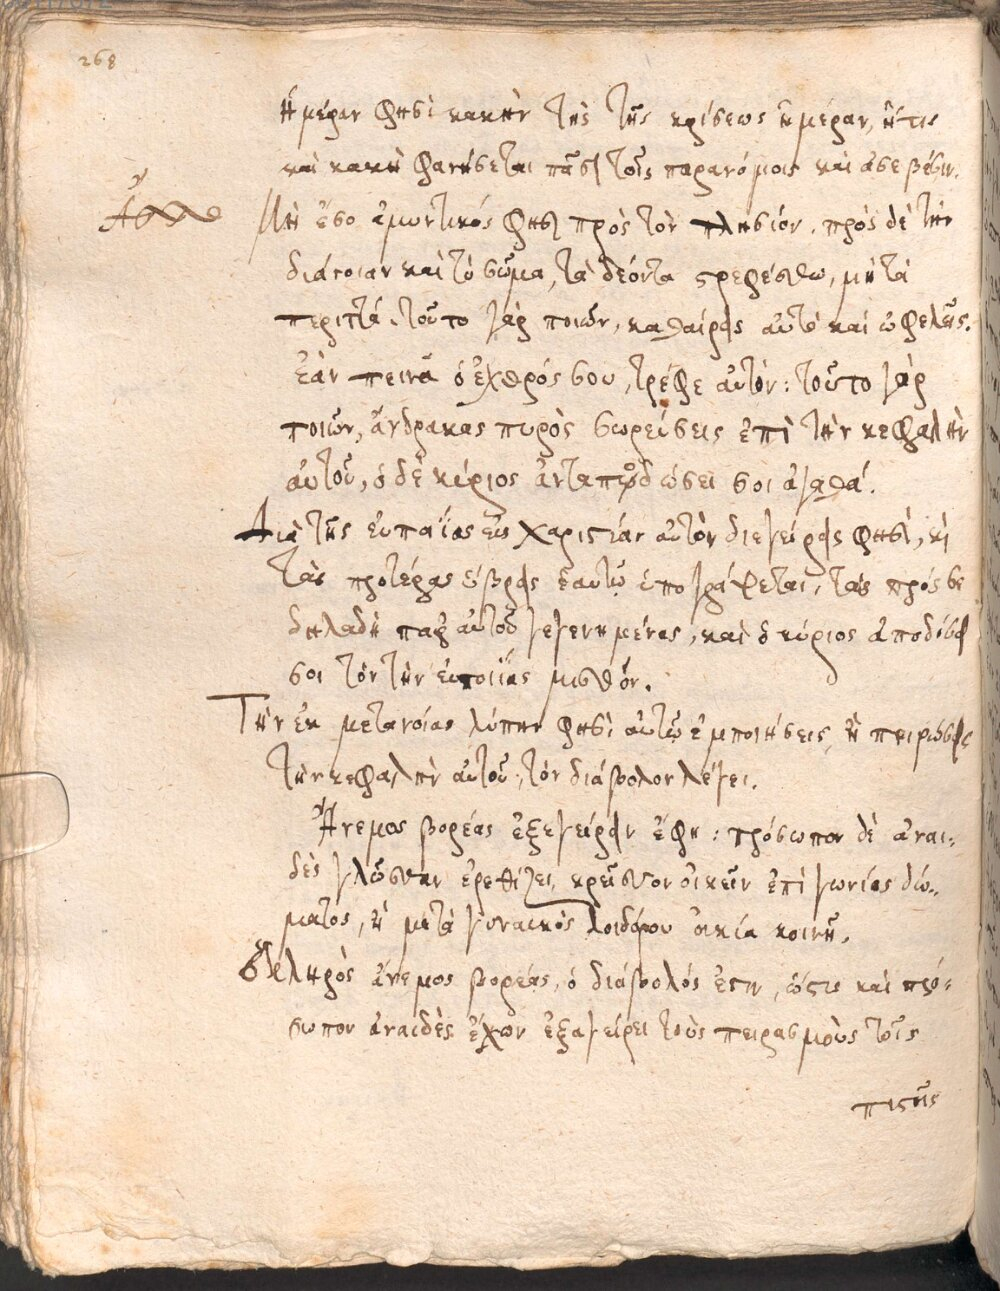 268
ἡμέραν φησὶ κακὴν τὴς τῆς κρίσεως ἡμέραν, ἥτις
καὶ κακὴ φανήσεται πᾶσι τοῖς παρανόμοις καὶ ἀσεβέσιν.
Μὴ ἔσο ἀμυντικός φησι πρὸς τὸν πλησίον. πρὸς δὲ τὴν
διάνοιαν καὶ τὸ σῶμα, τὰ δέοντα στρεφέσθω, μὴ τὰ
περιττά. τοῦτο γὰρ ποιῶν, καθαίρεις αὐτὸ καὶ ὠφελεῖς.
Ἐὰν πεινᾷ ὁ ἐχθρός σου, τρέφε αὐτόν: τοῦτο γὰρ
ποιῶν, ἄνθρακας πυρὸς σωρεύσεις ἐπὶ τὴν κεφαλὴν
αὐτοῦ, ὁ δὲ κύριος ἀνταποδώσει σοι ἀγαθά.
Διὰ τῆς εὐποιΐας εὐχαριστίαν αὐτὸν διεγείρεις φησὶ, καὶ
τὰς προτέρας ὕβρεις ἑαυτῷ ὑπογράψεται, τὰς πρός σε
δηλαδὴ παρ' αὐτοῦ γεγενημένας, καὶ ὁ κύριος ἀποδώσει
σοι τὸν τὴν εὐποιΐας μισθόν.
Τὴν ἐκ μετανοίας λύπην φησὶ αὐτῷ ἐμποιήσεις, ἢ
τὴν κεφαλὴν αὐτοῦ, τὸν διάβολον λέγει.
Ἄνεμος βορέας ἐξεγείρει ἔφη: πρόσωπον δὲ ἀναι-
δὲς γλῶσσαν ἐρεθίζει, κρεῖσσον οἰκεῖν ἐπὶ γωνίας δώ-
ματος, ἢ μετὰ γυναικὸς λοιδόρου οἰκία κοινῇ.
Σκληρὸς ἄνεμος βορέας, ὁ διάβολός ἐστιν, ὥστις καὶ πρό-
σωπον ἀναιδὲς ἔχων ἐξαγείρει τοὺς πειρασμοὺς τοῖς
πιστοῖς